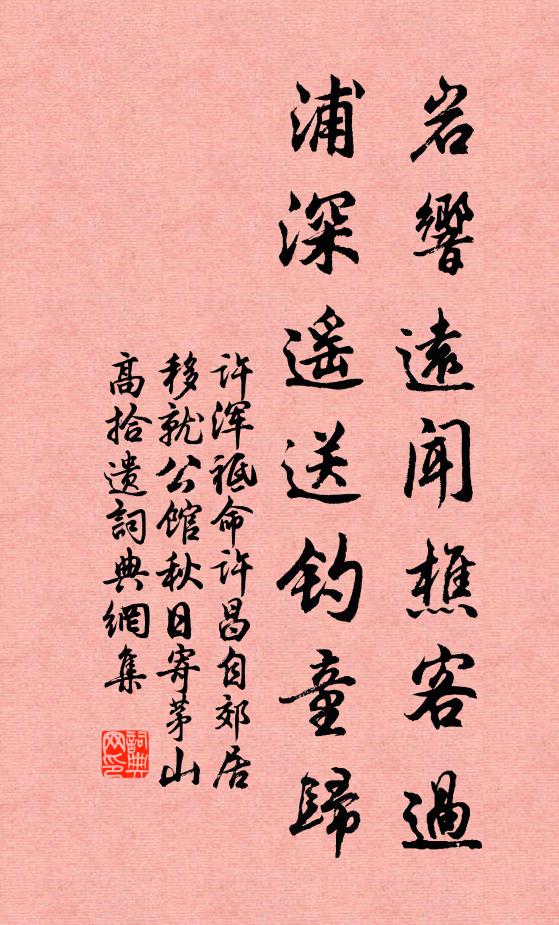 岩響遠聞樵客過
浦深遥送釣童歸
许浑祗命许昌自郊居
移就公館秋日寄茅山
高拾遗詞典網集
詞典
网印